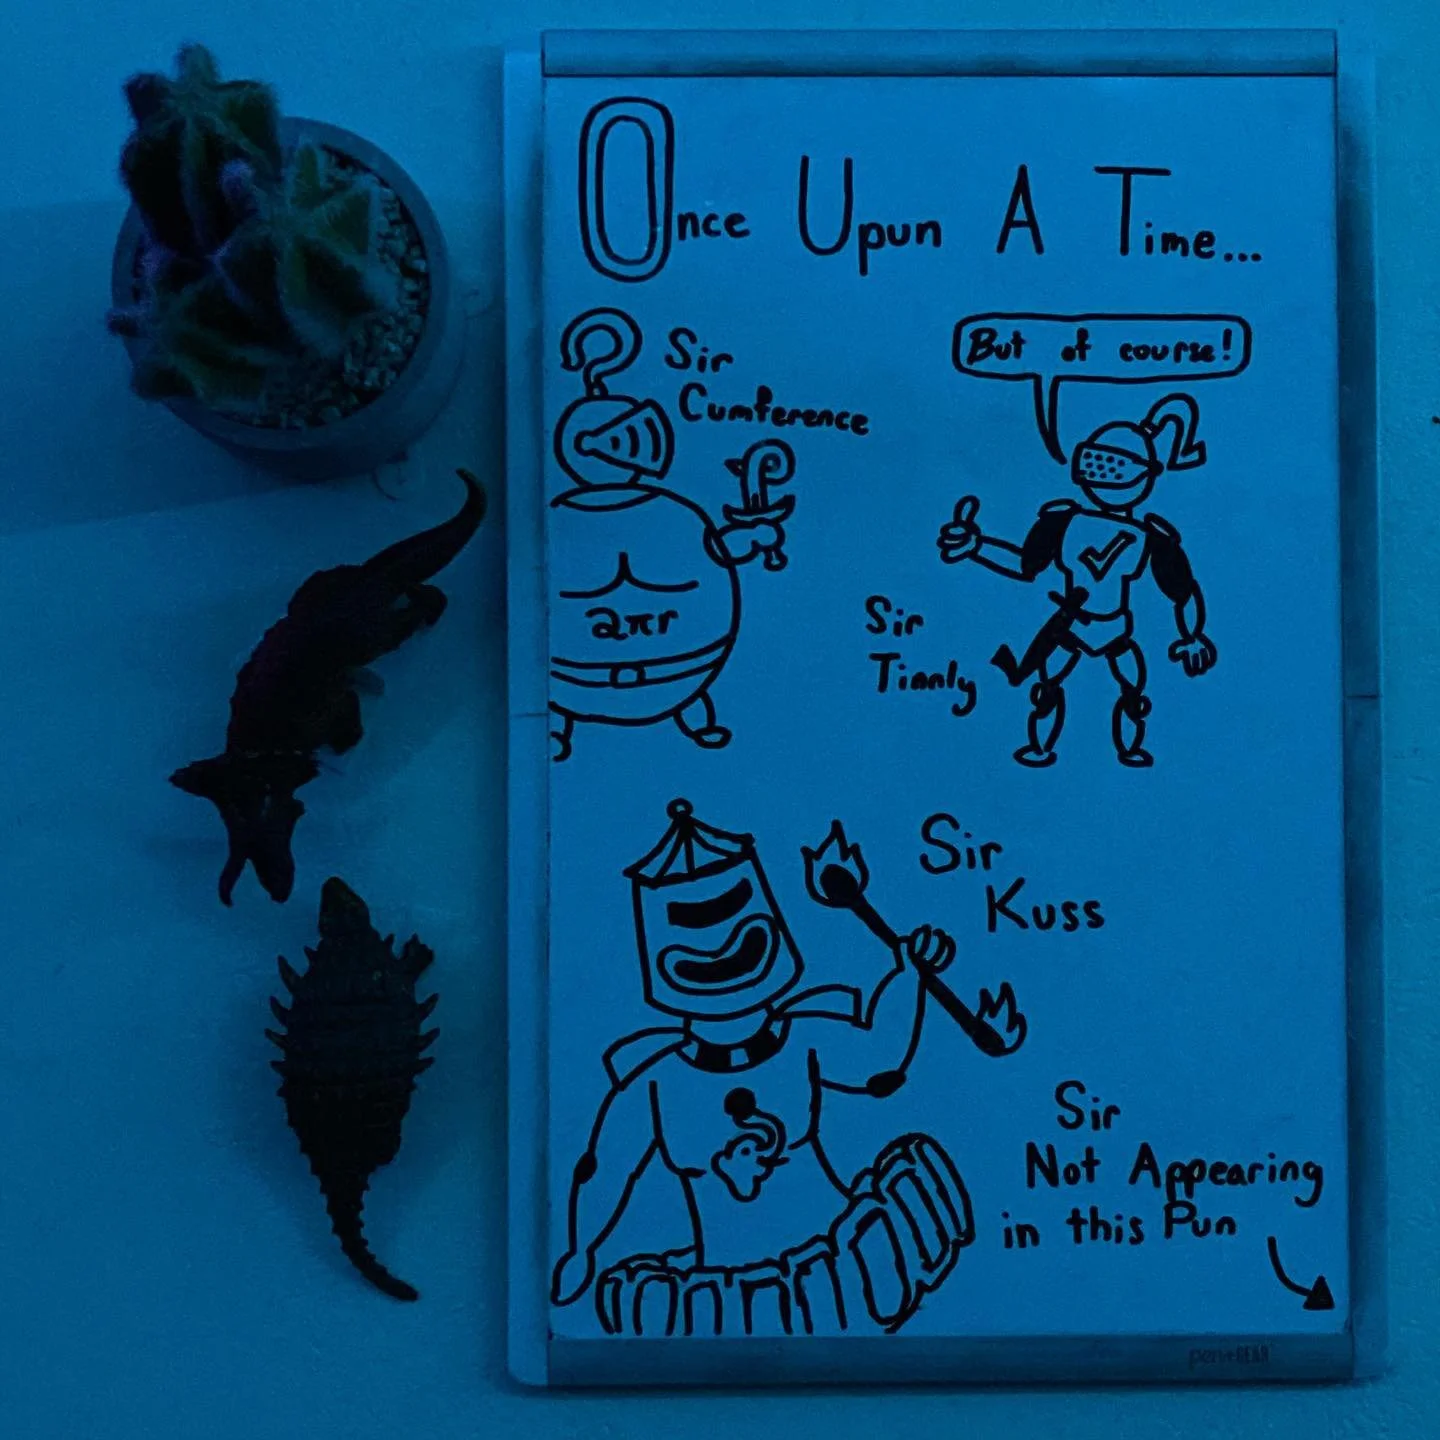 Once Upun A Time...
Sir
Cumference
2πr
But of course!
Sir
Tinnly
Sir
Kuss
Sir
Not Appearing
in this Pun
pen+GEAR